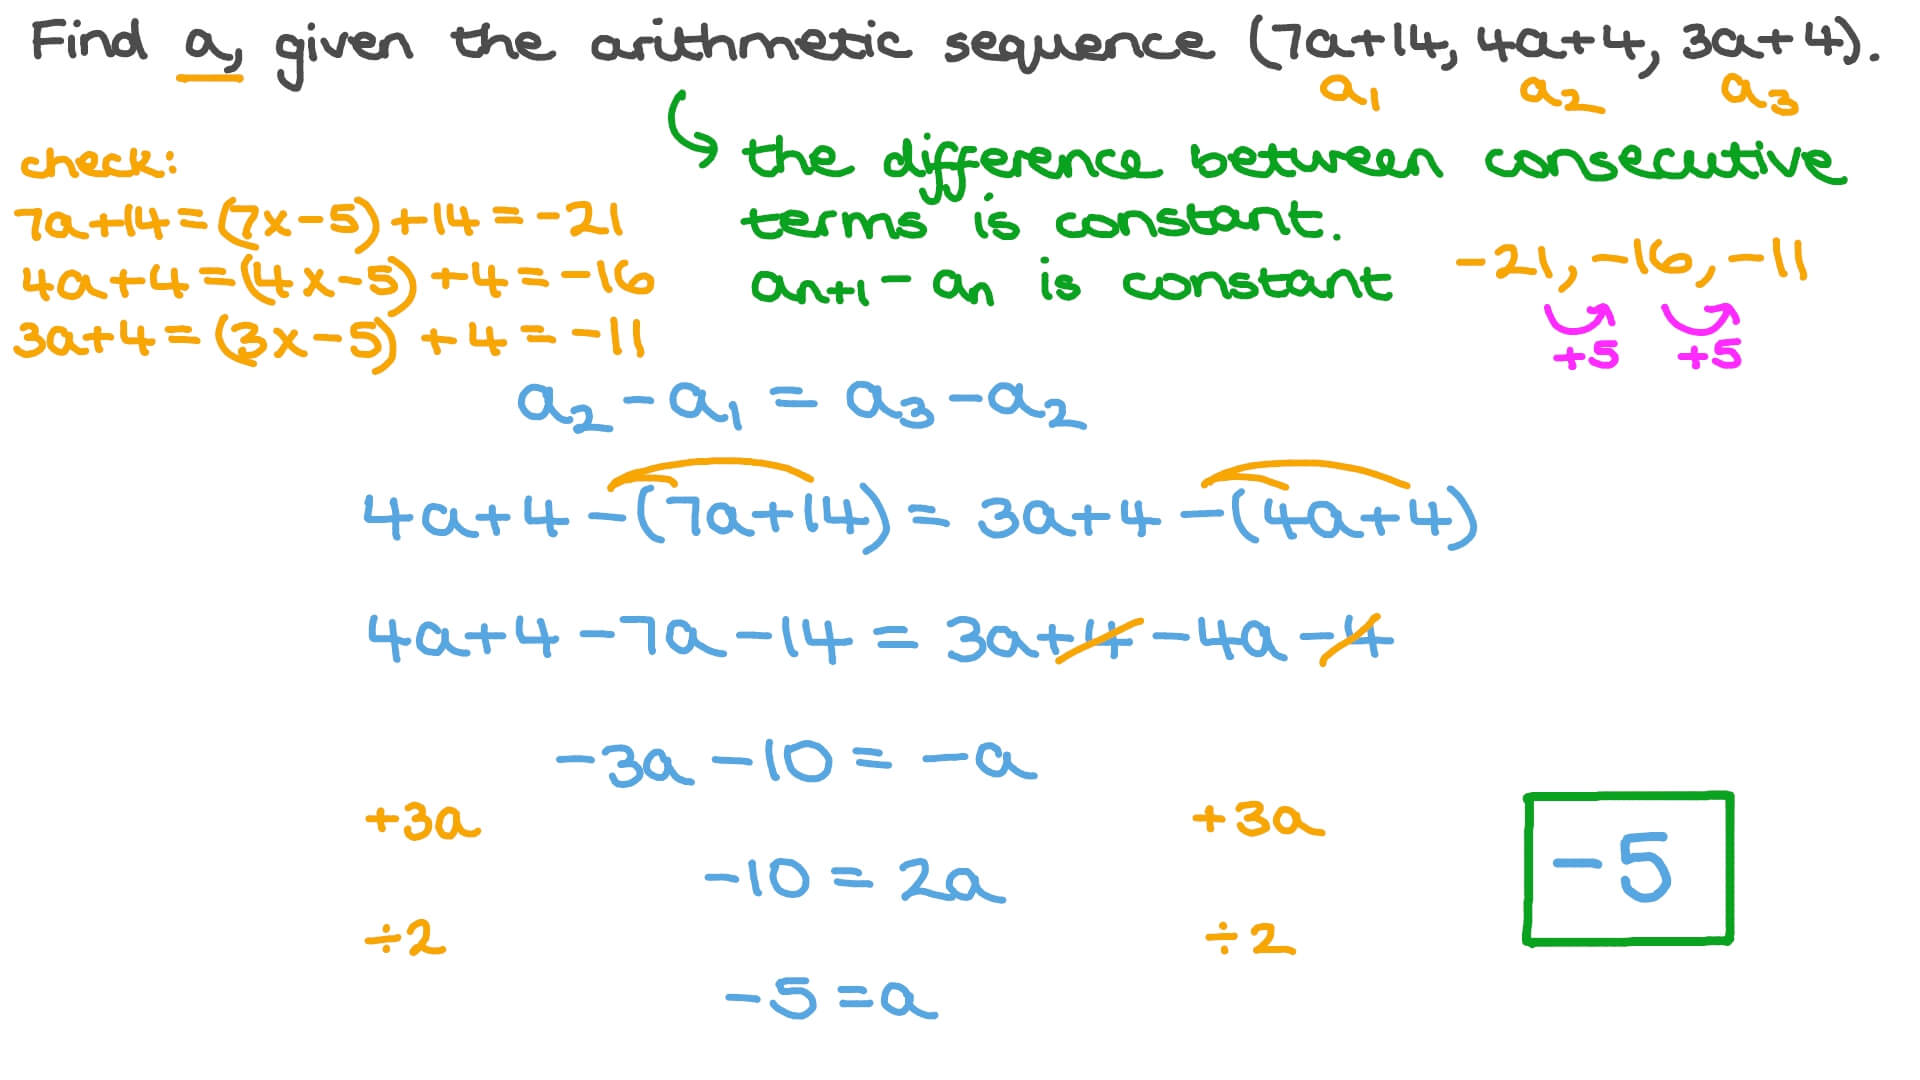 Find a, given the arithmetic sequence (7a+14, 4a+4, 3a+4).
a₁ a₂ a₃
the difference between consecutive
terms is constant.
aₙ₊₁ - aₙ is constant
check:
7a+14=(7x-5)+14=-21
4a+4=(4x-5)+4=-16
3a+4=(3x-5)+4=-11
-21, -16, -11
+5 +5
a₂-a₁=a₃-a₂
4a+4-(7a+14)=3a+4-(4a+4)
4a+4-7a-14=3a+4-4a-4
-3a-10=-a
+3a +3a
-10=2a
÷2 ÷2
-5=a
-5